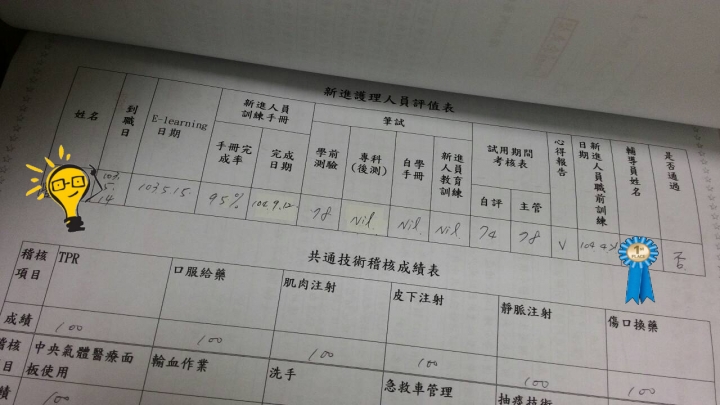 新進護理人員評值表
姓名
到職日
E-learning
日期
新進人員
訓練手冊
筆試
試用期間
考核表
心得報告
新進人員職前訓練日期
輔導員姓名
是否通過
手冊完
成率
完成
日期
學前
測驗
專科
(後測)
自學
手冊
新進
人員
教育
訓練
自評
主管
103.
5.
14
103.5.15.
95%
78
Nil
Nil
Nil
74
78
V
否
1st
PLACE
共通技術稽核成績表
稽核
項目
TPR
口服給藥
肌肉注射
皮下注射
靜脈注射
傷口換藥
成績
100
100
100
100
100
100
稽核
項目
中央氣體醫療面
板使用
輸血作業
洗手
急救車管理
抽痰技術
100